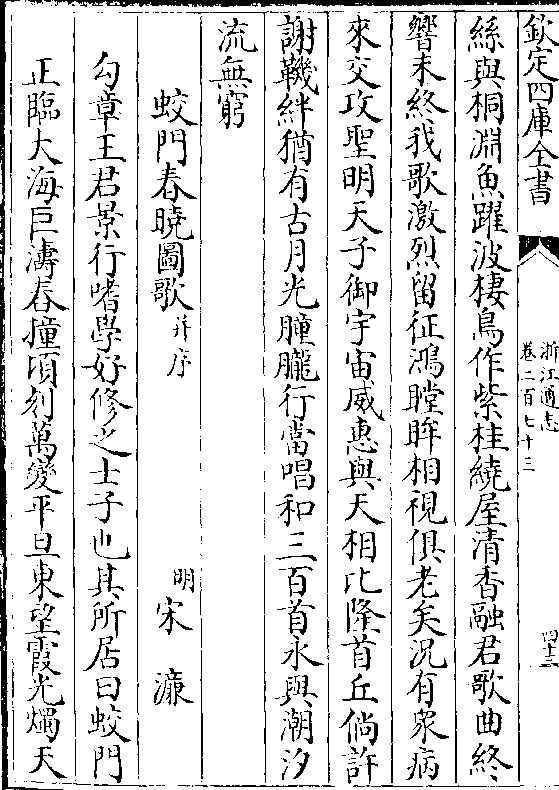 欽定四庫全書
浙江通志
卷二百七十三
四十三
絲與桐淵魚躍波棲鳥作紫桂繞屋清香融君歌曲終
響未終我歌激烈留征鴻瞠眸相視俱老矣況有衆病
來交攻聖明天子御宇宙威惠與天相比隆首丘倘許
謝鞿絆猶有古月光朣朧行當唱和三百首永與潮汐
流無窮
蛟門春曉圖歌并序
明宋濂
勾章王君景行嗜學好修之士子也其所居曰蛟門
正臨大海巨濤舂撞頃刻萬變平旦東望霞光燭天